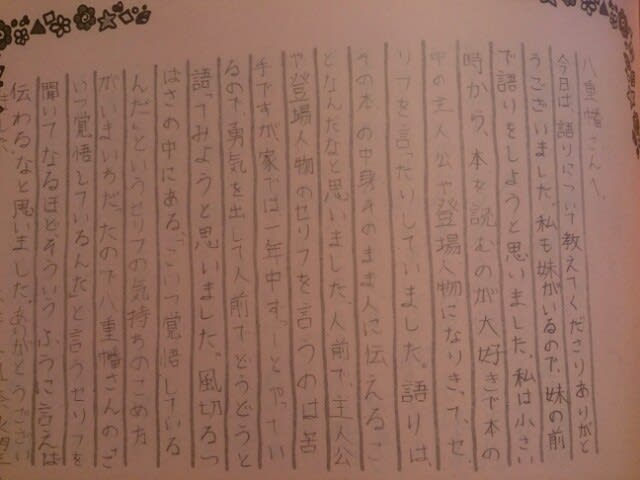 八重幡さんへ
今日は語りについて教えてくださりありがと
うございました。私も妹がいるので、妹の前
で語りをしようと思いました。私は小さい
時から、本を読むのが大好きで本の
中の主人公や登場人物になりきって、セ
リフを言ったいしていました。語りは、
その本の中身そのまま人に伝えるこ
となんだなと思いました。人前で、主人公
や登場人物のセリフを言うのは苦
手ですが家では一年中ずーとやってい
るので、勇気を出して人前でどうどうと
語ってみようと思いました。風切るつ
ばさの中にある、「こいつ覚悟している
んだ」というセリフの気持ちのこめ方
がいまいちだったので八重幡さんのこ
いつ覚悟しているんだ」と言うセリフを
聞いてなるほどそういうふうに言えば
伝わるなと思いました。ありがとうござい